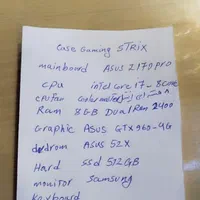 Case Gaming STRIX
mainboard Asus Z170 pro
cpu intel core i7-
cpu fan coolermaster
Ram 8GB Dual Ran 2400
Graphic Asus GTX 960-4G
dvdrom Asus 52X
Hard ssd 512GB
monitor Samsung
keyboard